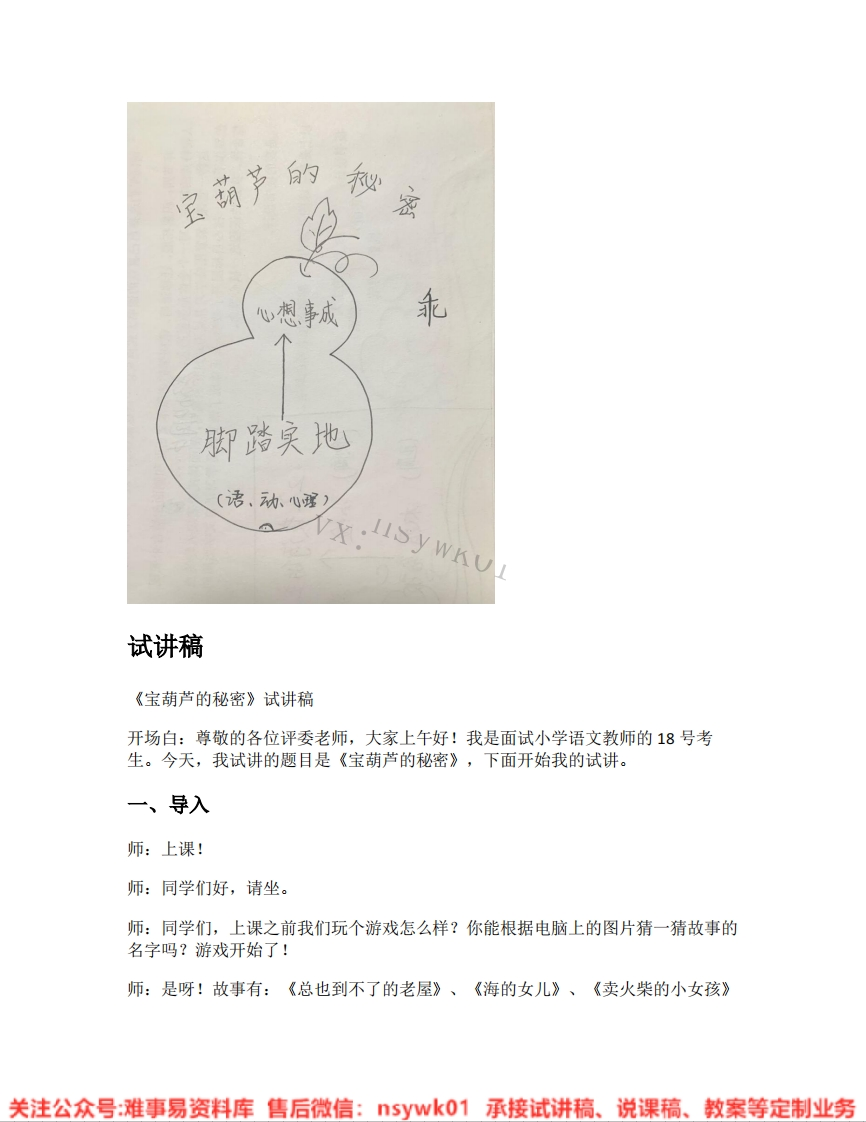 宝葫芦的秘密
心想事成
乖
脚踏实地
(语、动、心理)
试讲稿
《宝葫芦的秘密》试讲稿
开场白：尊敬的各位评委老师，大家上午好！我是面试小学语文教师的 18 号考
生。今天，我试讲的题目是《宝葫芦的秘密》，下面开始我的试讲。
一、导入
师：上课！
师：同学们好，请坐。
师：同学们，上课之前我们玩个游戏怎么样？你能根据电脑上的图片猜一猜故事的
名字吗？游戏开始了！
师：是呀！故事有：《总也到不了的老屋》、《海的女儿》、《卖火柴的小女孩》
关注公众号:难事易资料库 售后微信：nsywk01 承接试讲稿、说课稿、教案等定制业务